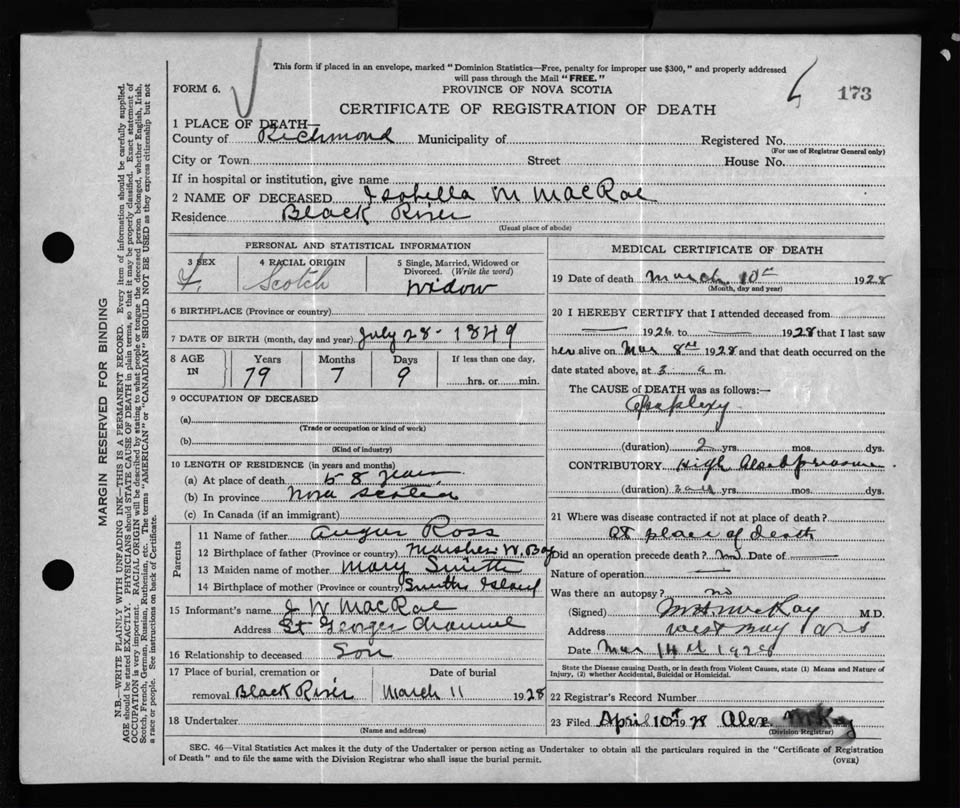 This form if placed in an envelope, marked "Dominion Statistics—Free, penalty for improper use $300," and properly addressed
will pass through the Mail "FREE."
FORM 6.
PROVINCE OF NOVA SCOTIA
173
CERTIFICATE OF REGISTRATION OF DEATH
1 PLACE OF DEATH—
County of Richmond Municipality of Registered No.
(For use of Registrar General only)
City or Town Street House No.
If in hospital or institution, give name
2 NAME OF DECEASED Isabella M MacRae
Residence Black River
(Usual place of abode)
PERSONAL AND STATISTICAL INFORMATION
3 SEX
F.
4 RACIAL ORIGIN
Scotch
5 Single, Married, Widowed or
Divorced. (Write the word)
Widow
6 BIRTHPLACE (Province or country)
7 DATE OF BIRTH (month, day and year) July 28 - 1849
8 AGE IN
Years Months Days If less than one day,
79 7 9 hrs. or min.
9 OCCUPATION OF DECEASED
(a)
(Trade or occupation or kind of work)
(b)
(Kind of industry)
10 LENGTH OF RESIDENCE (in years and months)
(a) At place of death 58 years
(b) In province Nova Scotia
(c) In Canada (if an immigrant)
Parents
11 Name of father Angus Ross
12 Birthplace of father (Province or country) W. Bay
13 Maiden name of mother Mary Smith
14 Birthplace of mother (Province or country) Smiths Island
15 Informant's name J W MacRae
Address St Georges Channel
16 Relationship to deceased Son
17 Place of burial, cremation or Date of burial
removal Black River March 11 1928
18 Undertaker
(Name and address)
MEDICAL CERTIFICATE OF DEATH
19 Date of death March 10th 1928
(Month, day and year)
20 I HEREBY CERTIFY that I attended deceased from
— 1926 to — 1928 that I last saw
her alive on Mar 8th 1928 and that death occurred on the
date stated above, at 3 a m.
The CAUSE of DEATH was as follows:—
Apoplexy
(duration) 2 yrs. mos. dys.
CONTRIBUTORY High blood pressure
(duration) yrs. mos. dys.
21 Where was disease contracted if not at place of death?
At place of death
Did an operation precede death? no Date of —
Nature of operation —
Was there an autopsy? no
(Signed) McKay M.D.
Address West Bay
Date Mar 14th 1928
State the Disease causing Death, or in death from Violent Causes, state (1) Means and Nature of
Injury, (2) whether Accidental, Suicidal or Homicidal.
22 Registrar's Record Number
23 Filed April 10th 1928 Alex. McKay
(Division Registrar)
SEC. 46—Vital Statistics Act makes it the duty of the Undertaker or person acting as Undertaker to obtain all the particulars required in the "Certificate of Registration
of Death" and to file the same with the Division Registrar who shall issue the burial permit.
(OVER)
MARGIN RESERVED FOR BINDING
N.B.—WRITE PLAINLY WITH UNFADING INK—THIS IS A PERMANENT RECORD. Every item of information should be carefully supplied.
AGE should be stated EXACTLY. PHYSICIANS should STATE CAUSE OF DEATH in plain terms, so that it may be properly classified. Exact statement of
OCCUPATION is very important. RACIAL ORIGIN will be described by stating to what people or tongue the deceased person belonged, whether English, Irish,
Scotch, French, German, Russian, Ruthenian, etc. The terms "AMERICAN" or "CANADIAN" SHOULD NOT BE USED as they express citizenship but not
a race or people. See instructions on back of Certificate.